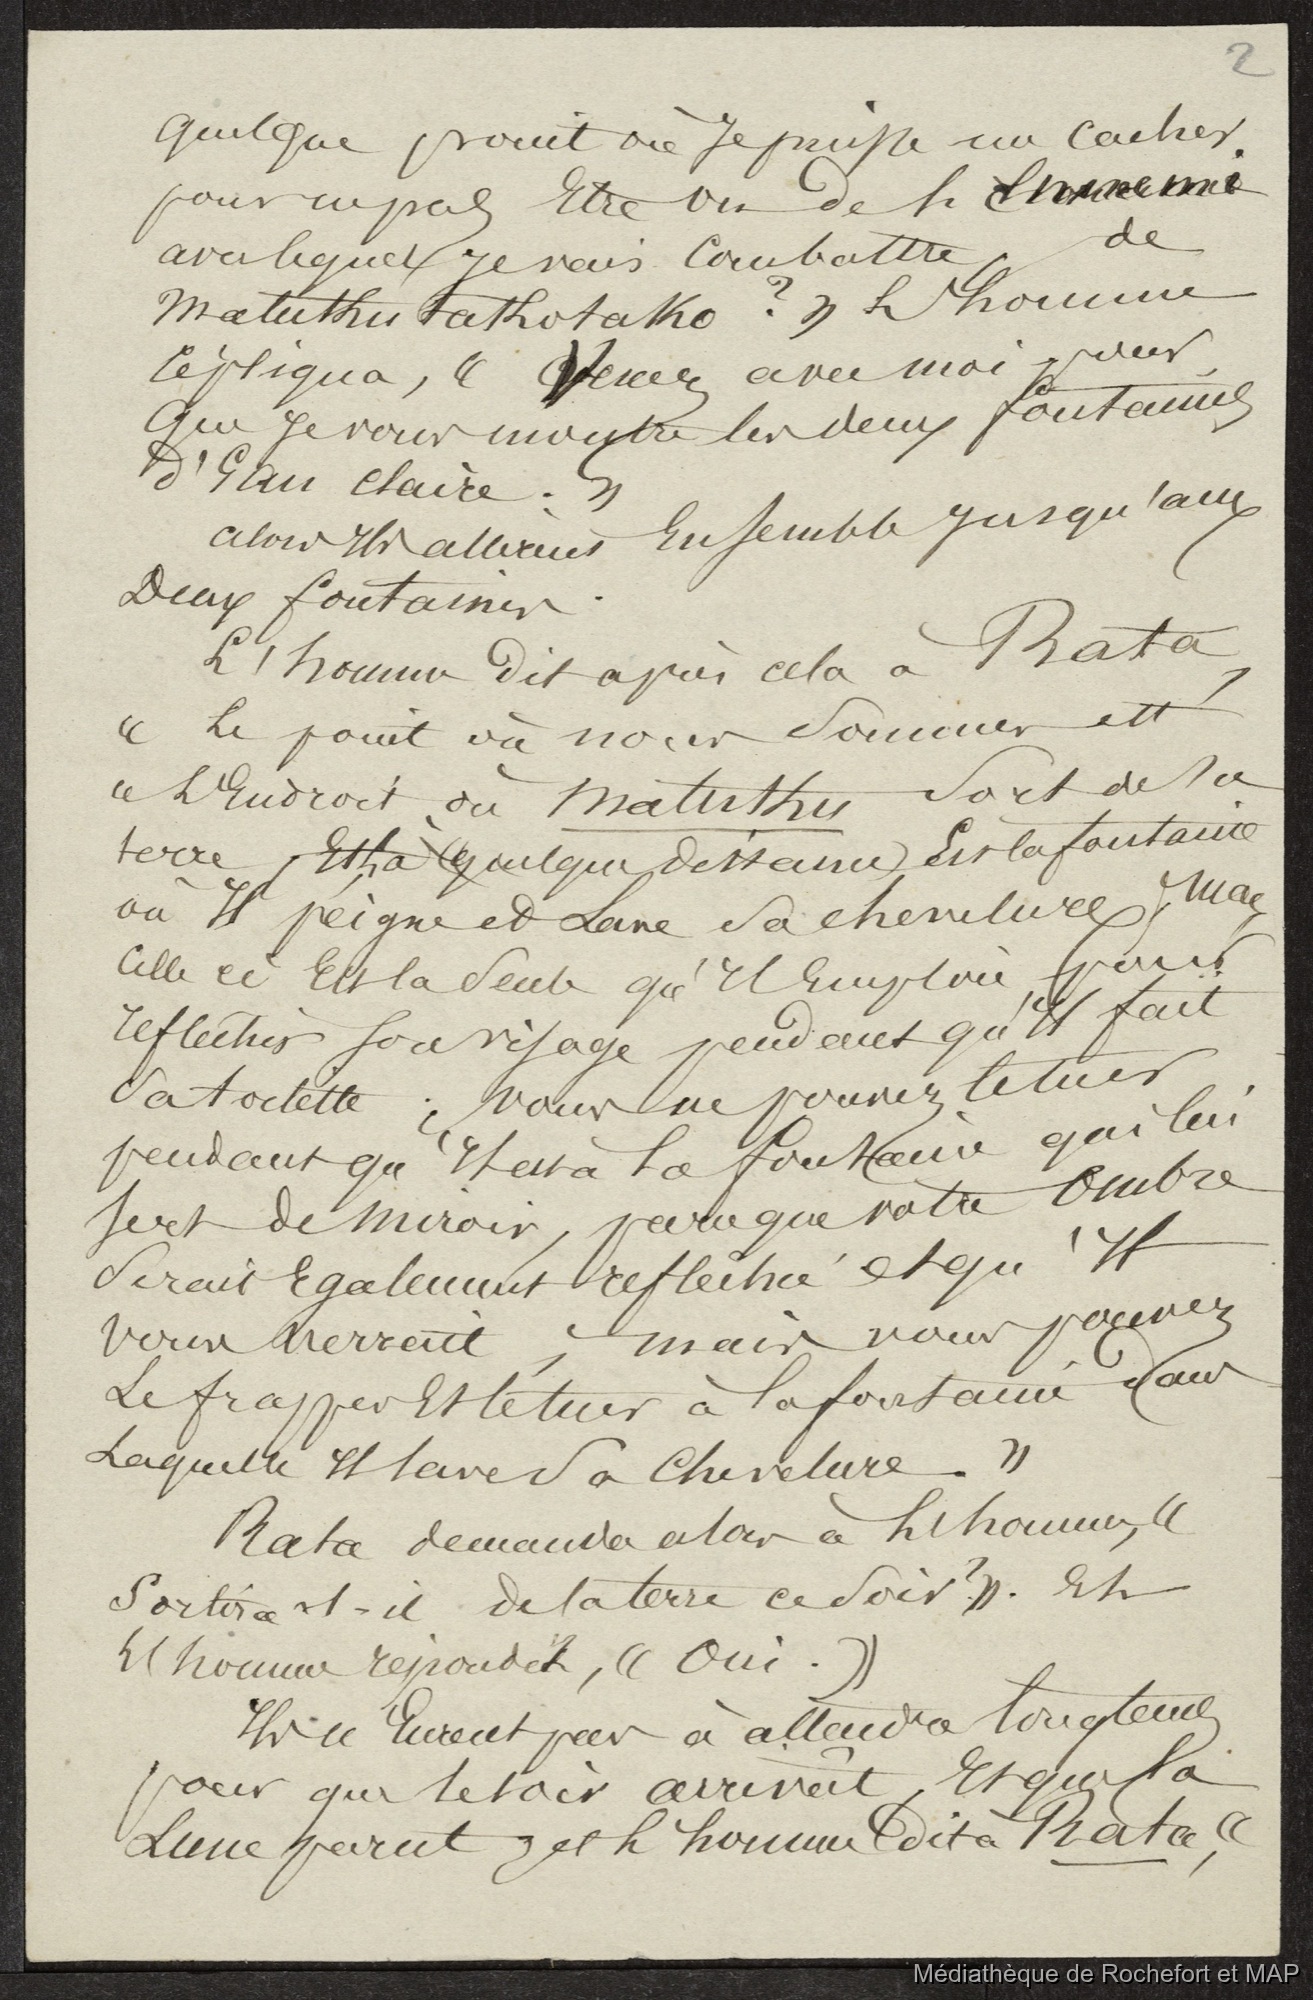 2
quelque point où Je puisse me cacher,
pour ne pas Etre vu de l'Ennemi
avec lequel je vais Combattre, de
Matuthu takotako ? » L'homme
répliqua, « Venez avec moi pour
que Je vous montre les deux fontaines
d'Eau claire. »
alors Ils allèrent Ensemble jusqu'aux
Deux fontaines.
L'homme dit après cela à Rata,
« Le point où nous Sommes est
« L'Endroit où Matuthu sort de la
terre, Et là (quelque distance) Est la fontaine
où Il peigne et Lave Sa chevelure, Mais
Celle ci Est la Seule qu'Il Emploie pour
réfléchir son visage pendant qu'Il fait
Sa toilette ; vous ne pouvez le tuer
pendant qu'Il est à la fontaine qui lui
sert de Miroir, parceque votre Ombre
Serait Egalement réfléchie et qu'Il
vous verrait, mais vous pouvez
Le frapper Et le tuer à la fontaine dans
Laquelle Il lave Sa Chevelure. »
Rata demanda alors à L'homme, «
Sortira-t-il de la terre ce Soir ? ». Et
L'homme répondit, « Oui. »
Ils n'Eurent pas à attendre longtems
pour que le soir arrivât, Et que la
Lune parut, et l'homme dit à Rata, «
Médiathèque de Rochefort et MAP